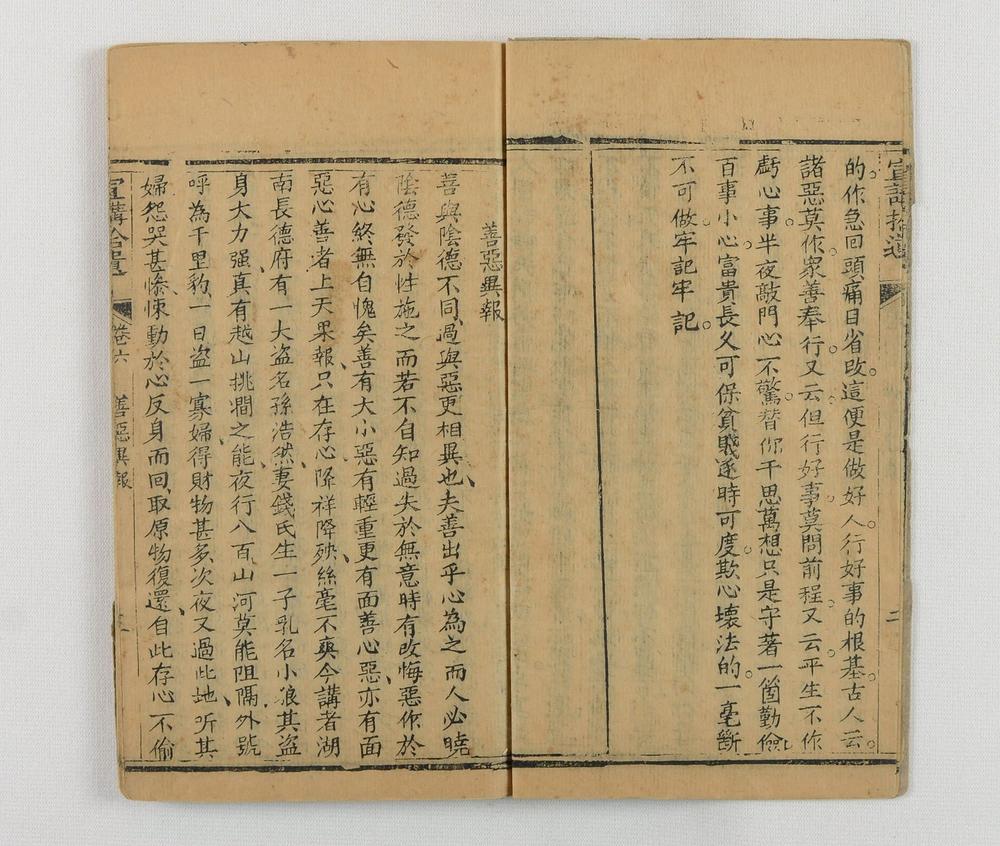 宣講拾遺
二
的作急回頭痛自省改這便是做好人行好事的根基古人云
諸惡莫作衆善奉行又云但行好事莫問前程又云平生不作
虧心事半夜敲門心不驚替你千思萬想只是守著一箇勤儉
百事小心富貴長久可保貧賤逐時可度欺心壞法的一毫斷
不可做牢記牢記
善惡異報
善與陰德不同過與惡更相異也夫善出乎心為之而人必曉
陰德發於性施之而若不自知過失於無意時有改悔惡作於
有心終無自愧矣善有大小惡有輕重更有面善心惡亦有面
惡心善者上天果報只在存心降祥降殃絲毫不爽今講者湖
南長德府有一大盜名孫浩然妻錢氏生一子乳名小狼其盜
身大力强真有越山挑澗之能夜行八百山河莫能阻隔外號
呼為千里豹一日盜一寡婦得財物甚多次夜又過此地听其
婦怨哭甚慘悚動於心反身而回取原物復還自此存心不偷
宣講拾遺
卷六
善惡異報